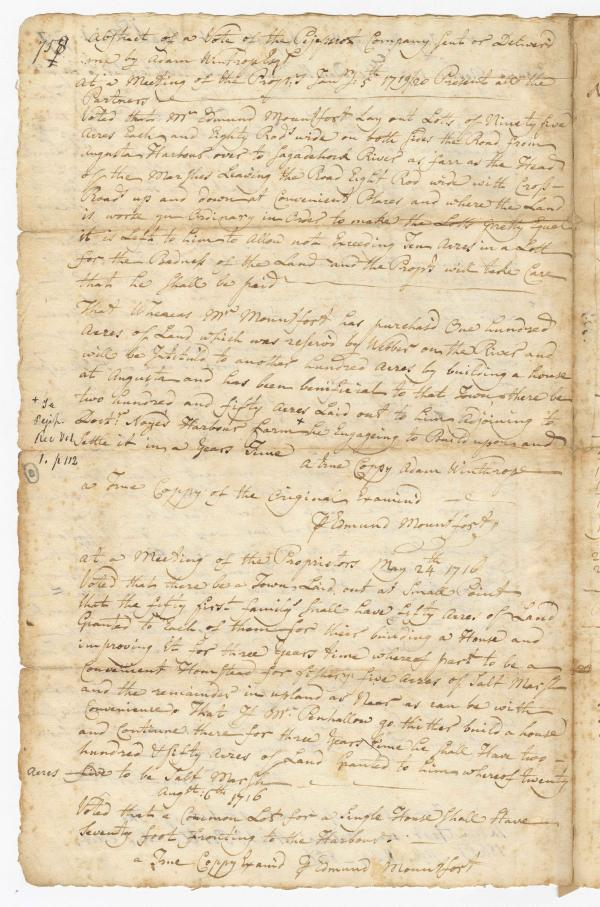 758
Abstract of a Vote of the Pejepscot Company sent or Deliverd
me by Adam Winthrop Esqr
At a Meeting of the Propr,s Janry 5th 1719/20 Present all the
Partners
Voted that Mr Edmund Mountfort Lay out Lotts of Ninety five
Acres Each and Eighty Rods wide on both sides the Road from
Augusta Harbour over to Sagadehock River as farr as the Head
of the Marshes Leaving the Road Eight Rod wide with Cross
Roads up and down at Convenient Places and where the Land
is worse yn Ordinary in Order to make the Lotts Pretty Equal
it is Left to him to Allow not Exceeding Ten Acres in a Lott
for the Badness of the Land and the Propr,s will take Care
that he shall be paid
That Whereas Mr Mountfort has purchasd One hundred
Acres of Land which was reservd by Webber on the River and
will be Intituld to another hundred Acres by building a house
at Augusta and has been benificial to that Town there be
two hundred and fifty Acres Laid out to him adjoining to
Doctr Noyes Harbour Farm + he Engageing to Build upon and
settle it in a Years Time
+ In
Pejep.
Rec Vol
1. p 112
A True Coppy Adam Winthrop
a True Coppy of the Original Examind
⅌ Edmund Mountfort
at a Meeting of the Proprietors May 24th 1716
Voted that there be a Town Laid out at Small Point
that the fifty first familys shall have fifty Acres of Land
Granted to Each of them for their building a House and
improving It for three Years time whereof part to be a
Convenient Homstead for five Acres of Salt Marsh
and the remainder in upland as Near as can be with
Convenience That If Mr Penhallow go thither build a house
and Continue there for three Years time he shall Have two
hundred & fifty Acres of Land Granted to him whereof twenty
acres five to be Salt Marsh
Augt: 6th 1716
Voted that a Common Lot for a Single House shall Have
Seventy foot fronting to the Harbour
a True Coppy Examd ⅌ Edmund Mountfort